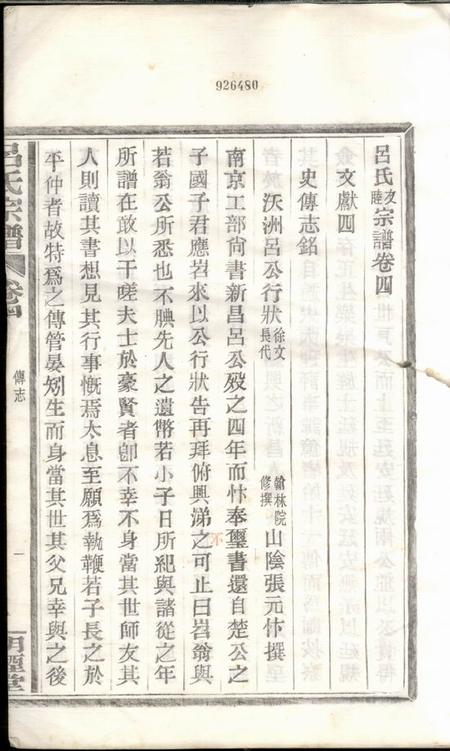 926480
呂氏友睦宗譜卷四
文獻四
史傳志銘
沃洲呂公行狀 徐文長代 翰林院修撰 山陰張元忭撰
南京工部尚書新昌呂公歿之四年而忭奉璽書還自楚公之
子國子君應岩來以公行狀告再拜俯興涕之不可止曰岩翁與
若翁公所悉也不腆先人之遺幣若小子日所紀與諸從之年
所譜在敢以干嗟夫士於豪賢者卽不幸不身當其世師友其
人則讀其書想見其行事慨焉太息至願爲執鞭若子長之於
平仲者故特爲之傳管晏矧生而身當其世其父兄幸與之後
呂氏宗譜 卷四
傳志
一
明煙堂